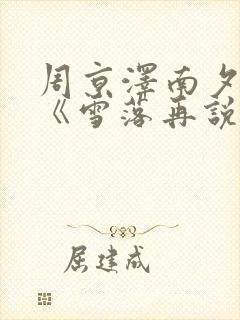 周京澤南夕
《雪落再說
屈建成